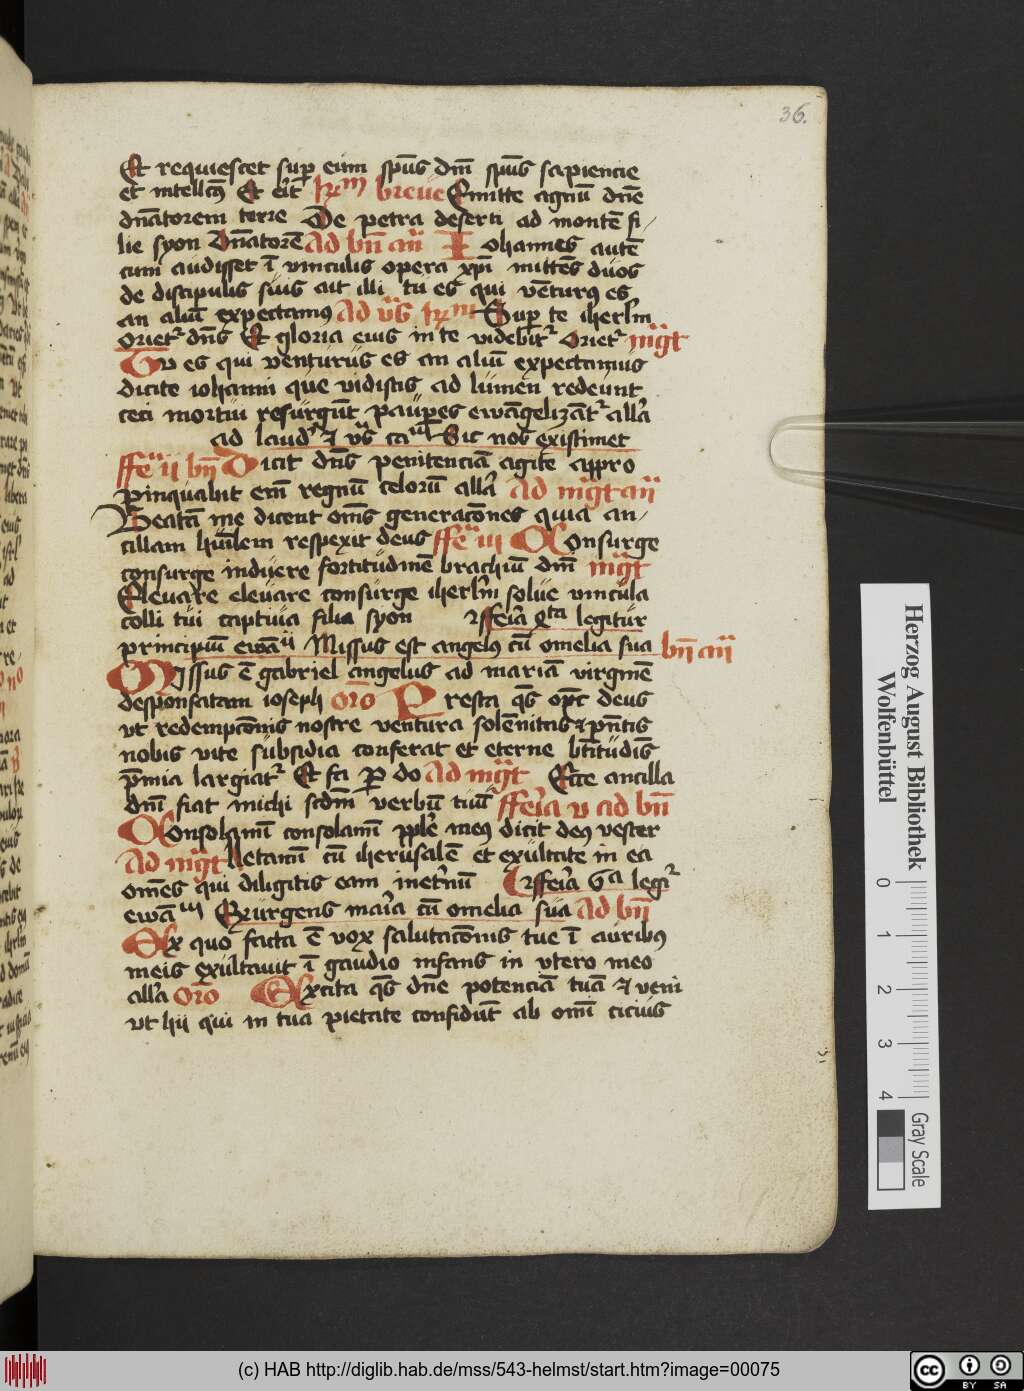 36.
Et requiescet sup eum spūs dm̄ spūs sapiencie
et intellcūs Et eīt breue Emitte agnū dn̄e
dn̄atorem terre De petra deserti ad montē fi
lie syon Dn̄atorē Ad bn̄ an̄ Iohannes autē
cum audisset ī vinculis opera xp̄i mittēs duos
de discipulis suis ait illi tu es qui ventur9 es
an aliū expectam9 Ad Sup te iherlm̄
orietr dn̄s Et gloria eius in te videbitr Orietr mg̅t
Tu es qui venturus es an aliū expectamus
dicite iohanni que vidistis ad lumen redeunt
ceci mortui resurgūt paupes ewāgelizātr all̄a
ad laud Sic nos existimet
ffea ii bn̄ Dicit dn̄s penitenciā agite appro
pinquabit em̄ regnū celorū all̄a Ad mg̅t an̄
Beatā me dicent om̄s generacōnes quia an
cillam hūilem respexit deus ffea iii Consurge
consurge induere fortitudinē brachiū dm̄ mg̅t
Eleuare eleuare consurge iherlm̄ solue vincula
colli tui captiua filia syon ffeīa qta legitur
principiū ewāii Missus est angelus cū omelia sua bn̄ an̄
Missus ē gabriel angelus ad mariā virginē
desponsatam ioseph orō Presta qs̄ opc̄ deus
vt redempcōnis nostre ventura solēnitas et pn̄tis
nobis vite subsidia conferat et eterne btītudis̄
p̄mia largiatr Et sci p do Ad mg̅t Ecce ancilla
dn̄i fiat michi scdm̄ verbū tuū ffeīa v ad bn̄
Consolamī consolamī pple me9 dicit de9 vester
Ad mg̅t Letamī cū iherusalē et exultate in ea
omēs qui diligitis eam inet̄nū ffeīa 6a legr
ewā Exurgens maīa cū omelia sua Ad bn̄
Ex quo facta ē vox salutacōnis tue ī aurib9
meis exultauit ī gaudio infans in vtero meo
all̄a orō Excita qs̄ dn̄e potenciā tuā et veni
vt hii qui in tua pietate confidūt ab omī cicius
Herzog August Bibliothek
Wolfenbüttel
0 1 2 3 4
Gray Scale
(c) HAB http://diglib.hab.de/mss/543-helmst/start.htm?image=00075
cc BY SA